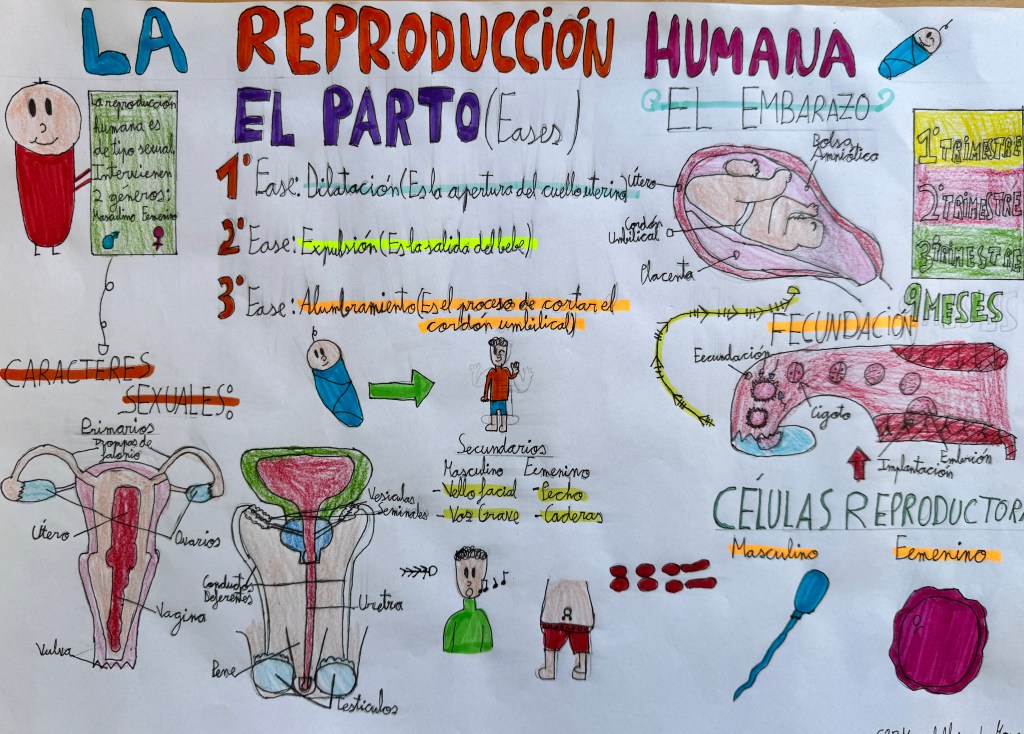 LA REPRODUCCIÓN HUMANA
La reproducción
humana es
de tipo sexual.
Intervienen
2 géneros:
Masculino Femenino
EL PARTO (Fases)
1ª Fase: Dilatación (Es la apertura del cuello uterino)
2ª Fase: Expulsión (Es la salida del bebe)
3ª Fase: Alumbramiento (Es el proceso de cortar el
cordón umbilical)
EL EMBARAZO
Bolsa
Amniótica
Útero
Cordón
Umbilical
Placenta
1º TRIMESTRE
2º TRIMESTRE
3º TRIMESTRE
9 MESES
FECUNDACIÓN
Fecundación
Cigoto
Embrión
Implantación
CARACTERES
SEXUALES:
Primarios
Trompas de
falopio
Útero
Ovarios
Vagina
Vulva
Vesículas
Seminales
Conductos
Deferentes
Uretra
Pene
Testículos
Secundarios
Masculino Femenino
- Vello facial - Pecho
- Voz Grave - Caderas
CÉLULAS REPRODUCTOR
Masculino Femenino